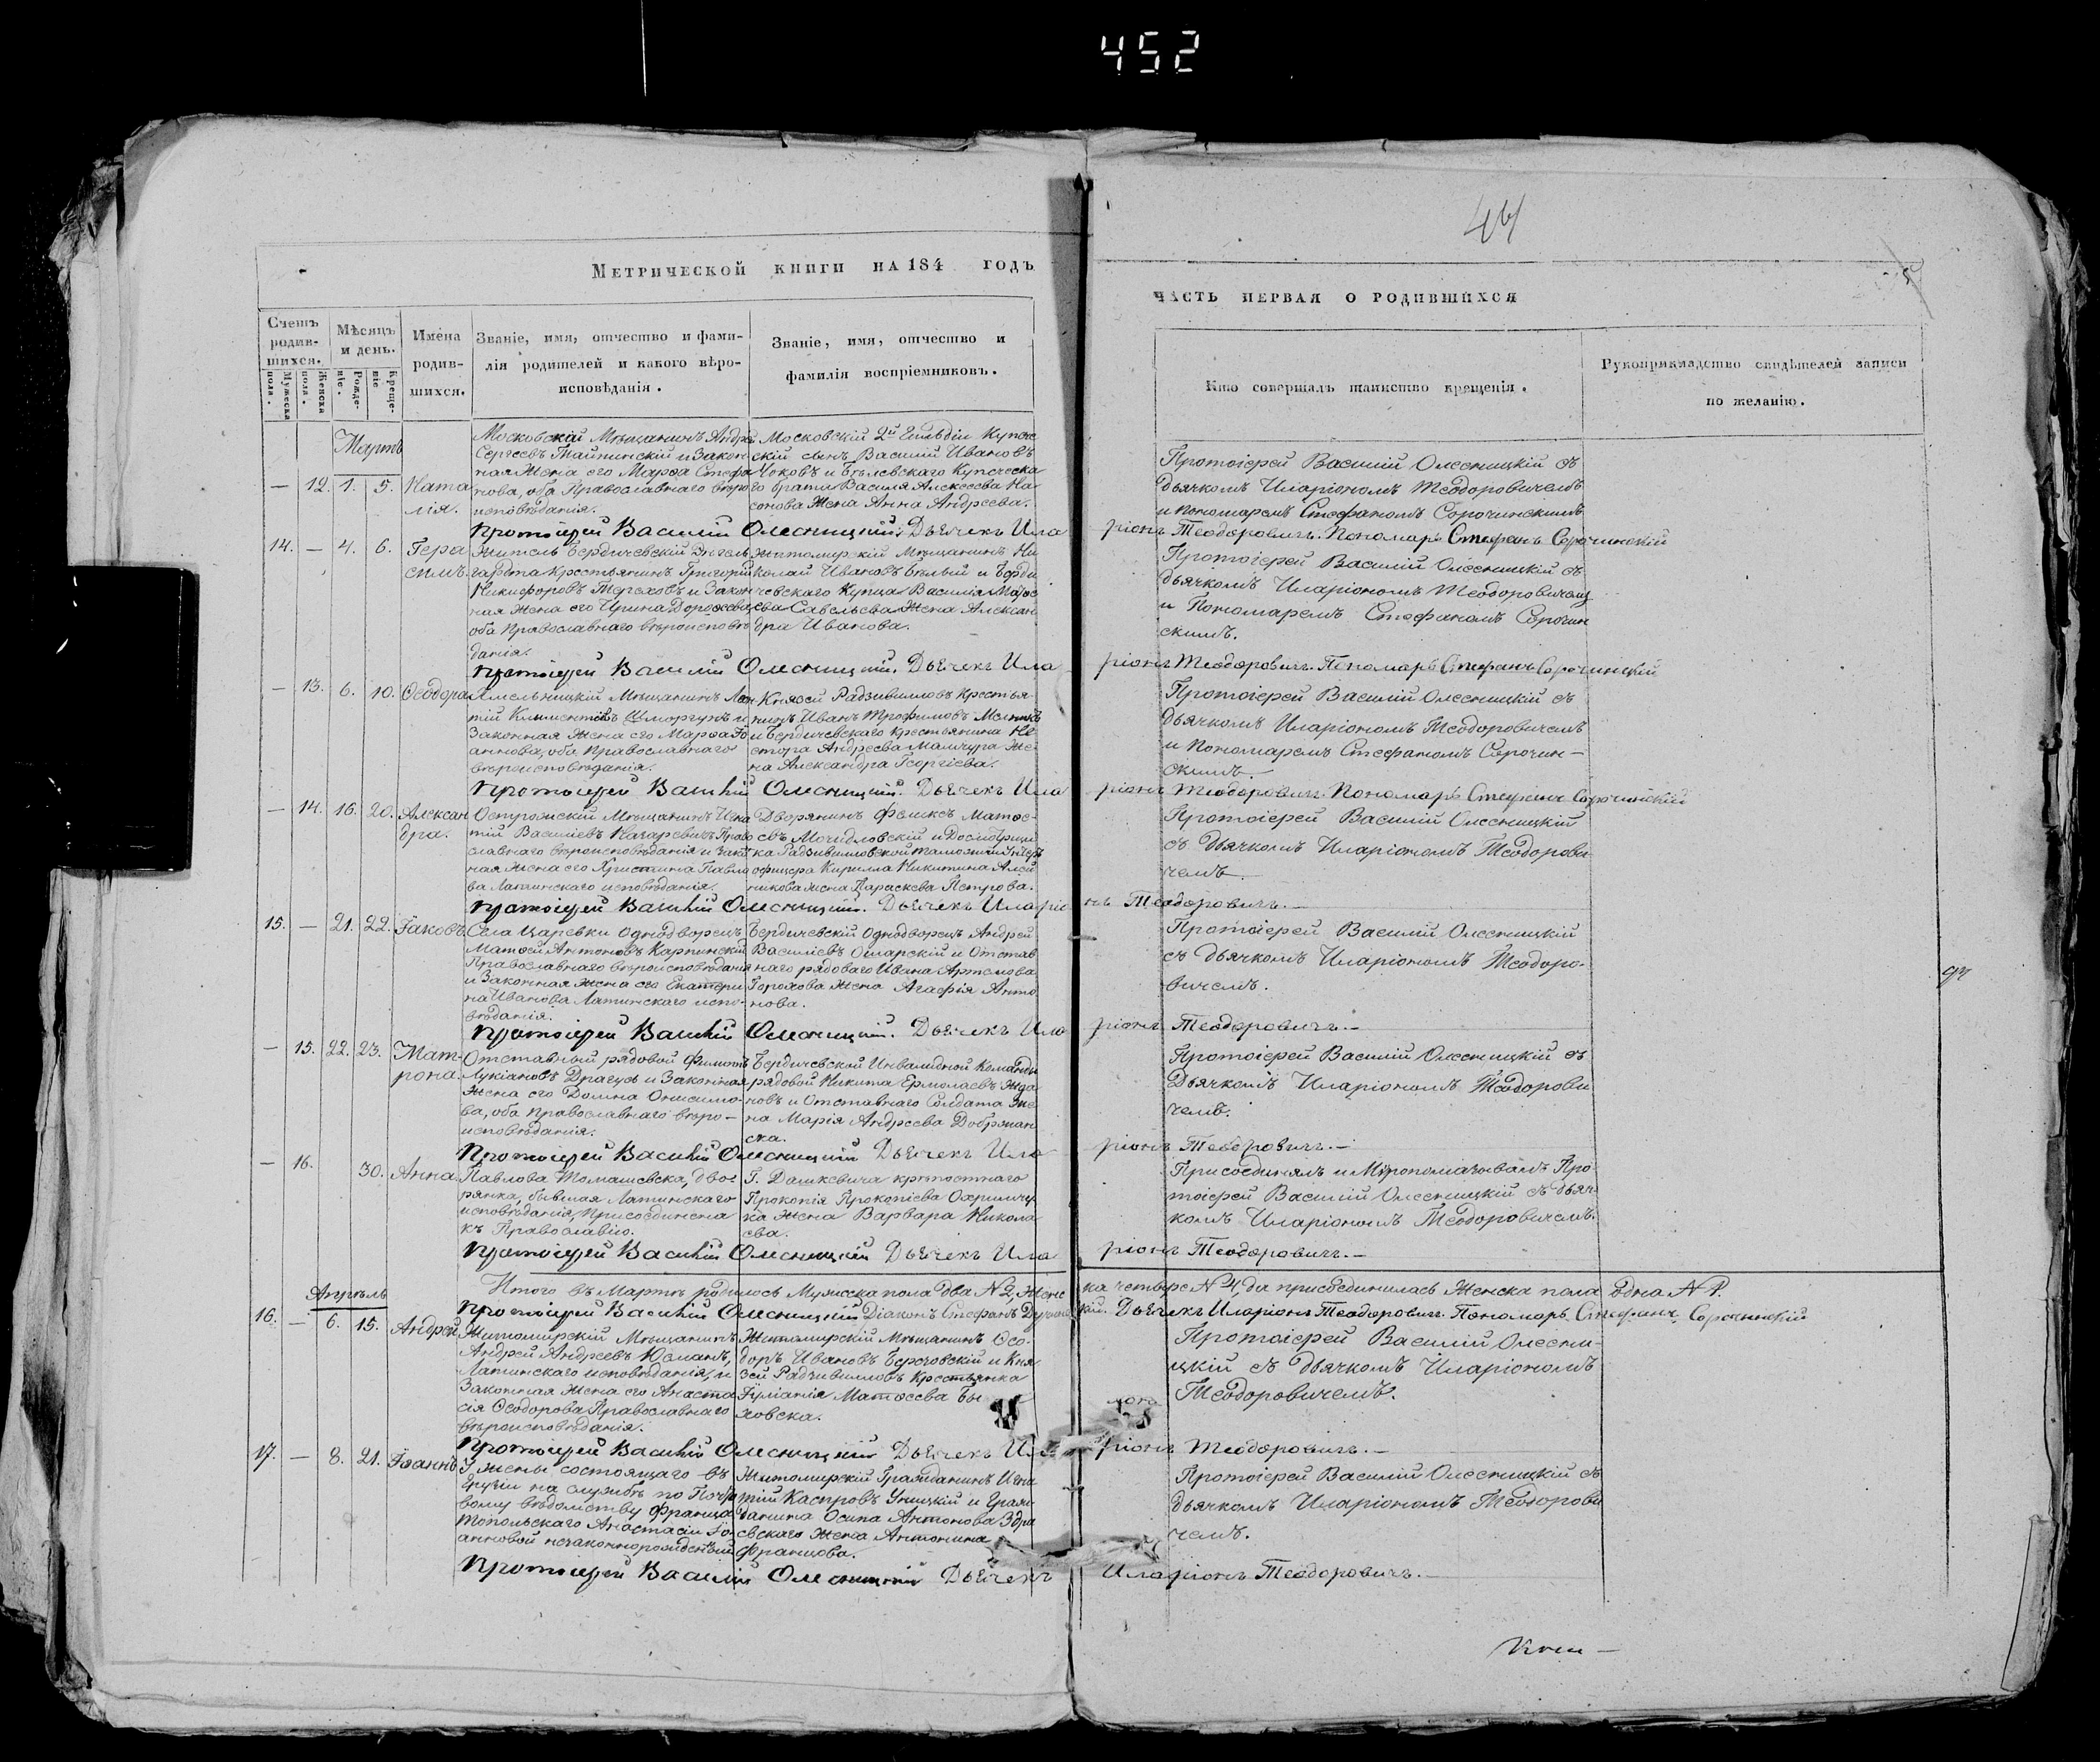 452
44
Метрической книги на 184 годъ
часть первая о родившихся
Счетъ родившихся.
Мужеска пола.
Женска пола.
Мѣсяцъ и день.
Рожденіе.
Крещеніе.
Имена родившихся.
Званіе, имя, отчество и фами-
лія родителей и какого вѣро-
исповѣданія.
Званіе, имя, отчество и
фамилія воспріемниковъ.
Кто совершалъ таинство крещенія.
Рукоприкладство свидѣтелей записи
по желанію.
Мартъ
— 12. 1. 5. Ната
лія.
Московскій Мѣщанинъ Андрей
Сергеевъ Тайнинскій и Закон
ная Жена его Марѳа Стефа
нова, оба Православнаго вѣро
исповѣданія.
Московскій 2й Гильдіи Купече
скій сынъ Василій Ивановъ
Чоковъ и Бѣлевскаго Купческа
го брата Василя Алексеева На
сонова Жена Анна Андреева.
Протоіерей Василій Олесницкій съ
дьячкомъ Иларіономъ Теодоровичемъ
и пономаремъ Стефаномъ Сорочинскимъ
Протоіерей Василій Олесницкій. Дьячекъ Ила
ріонъ Теодоровичъ. Пономаръ Стефанъ Сорочинскій
14. — 4. 6. Гера
симъ.
Житель Бердичевскій Энгель
гардта крестьянинъ Григорій
Никифоровъ Тереховъ и Закон
ная Жена его Ирина Дорофеева
оба Православнаго вѣроисповѣ
данія.
Житомирскій Мѣщанинъ Ни
колай Ивановъ Бѣлый и Берди
чевскаго Купца Василія Матѳе
ева Савельева Жена Алексан
дра Иванова.
Протоіерей Василій Олесницкій съ
дьячкомъ Иларіономъ Теодоровичемъ
и Пономаремъ Стефаномъ Сорочин
скимъ.
Протоіерей Василій Олесницкій. Дьячекъ Ила
ріонъ Теодоровичъ. Пономаръ Стефанъ Сорочинскій
— 13. 6. 10. Ѳеодора
Хмельницкій Мѣщанинъ Леон
тій Климентіевъ Шморгунъ и
Законная Жена его Марѳа Іо
аннова, оба Православнаго
вѣроисповѣданія.
Князей Радзивиловъ Крестья
нинъ Иванъ Трофимовъ Мельникъ
и Бердичевскаго Крестьянина Не
стора Андреева Мамчура Же
на Александра Георгіева.
Протоіерей Василій Олесницкій съ
дьячкомъ Иларіономъ Теодоровичемъ
и Пономаремъ Стефаномъ Сорочин—
скимъ.
Протоіерей Василій Олесницкій. Дьячекъ Ила
ріонъ Теодоровичъ. Пономаръ Стефанъ Сорочинскій
— 14. 16. 20. Алексан
дра.
Острожскій Мѣщанинъ Игна
тій Василіевъ Качаревичъ Право
славнаго вѣроисповѣданія и Закон
ная Жена его Христина Павло
ва Латинскаго исповѣданія.
Дворянинъ Феликсъ Матѳе-
евъ Мочидловскій и Досмотрщи
ка Радзивиловской таможни Унтеръ
офицера Кирилла Никитина Алей
никова жена Параскева Петрова.
Протоіерей Василій Олесницкій
съ Дьячкомъ Иларіономъ Теодорови
чемъ.
Протоіерей Василій Олесницкій. Дьячекъ Иларіо
нъ Теодоровичъ.
15. — 21. 22. Іаковъ
Села Царевки Однодворецъ
Матѳей Антоновъ Карпинскій
Православнаго вѣроисповѣданія
и Законная жена его Екатери
на Иванова Латинскаго испо-
вѣданія.
Бердичевскій Однодворецъ Андрей
Василіевъ Ошарскій и Отстав
наго рядоваго Ивана Артемова
Горохова Жена Агафія Анто
нова.
Протоіерей Василій Олесницкій
съ Дьячкомъ Иларіономъ Теодоро-
вичемъ.
Протоіерей Василій Олесницкій. Дьячекъ Ила
ріонъ Теодоровичъ.—
— 15. 22. 23. Мат-
рона.
Отставный рядовой Филиппъ
Лукіановъ Драгуся и Законная
Жена его Домна Онисимо-
ва, оба православнаго вѣро—
исповѣданія.
Бердичевской Инвалидной Команды
рядовой Никита Ермолаевъ Жда
новъ и Отставнаго Солдата Же
на Марія Андреева Добржан
ска.
Протоіерей Василій Олесницкій съ
Дьячкомъ Иларіономъ Теодорови
чемъ.
Протоіерей Василій Олесницкій Дьячекъ Ила
ріонъ Теодоровичъ.—
— 16. 30. Анна
Павлова Томашевска, дво-
рянка, бывшая Латинскаго
исповѣданія, Присоединена
къ Православію.
Г. Дашкевича крѣпостнаго
Прокопія Прокопіева Охримчу
ка жена Варвара Никола
ева.
Присоединялъ и Мѵропомазывалъ Про
тоіерей Василій Олесницкій съ дьяч
комъ Иларіономъ Теодоровичемъ.
Протоіерей Василій Олесницкій Дьячекъ Ила
ріонъ Теодоровичъ.—
Итого въ Мартѣ родилось Мужеска пола два N 2, Женс
ка четыре N 4, да присоединилась Женска пола одна N 1.
Протоіерей Василій Олесницкій Діаконъ Стефанъ
Дьячекъ Иларіонъ Теодоровичъ. Пономаръ Стефанъ Сорочинскій
Апрѣль
16. — 6. 15. Андрей
Житомирскій Мѣщанинъ
Андрей Андреевъ Юсманъ,
Латинскаго исповѣданія, и
Законная Жена его Анаста
сія Ѳеодорова Православнаго
вѣроисповѣданія.
Житомирскій Мѣщанинъ Ѳео-
доръ Ивановъ Березовскій и Кня
зей Радзивиловъ Крестьянка
Іуліанія Матѳеева Бы
ховска.
Протоіерей Василій Олесни-
цкій съ дьячкомъ Иларіономъ
Теодоровичемъ.
Протоіерей Василій Олесницкій Дьячекъ Ила
ріонъ Теодоровичъ.—
17. — 8. 21. Іоаннъ
У жены состоящаго въ
Грузіи на службѣ по Почто
вому вѣдомству Франца
Топольскаго Анастасіи Іо-
анновой незаконнорожденный
Житомирскій Гражданинъ Игна
тій Каспровъ Уницкій и Граж
данина Осипа Антонова Здра
евскаго Жена Антонина
Францова.
Протоіерей Василій Олесницкій съ
дьячкомъ Иларіономъ Теодорови
чемъ.
Протоіерей Василій Олесницкій Дьячекъ
Иларіонъ Теодоровичъ.